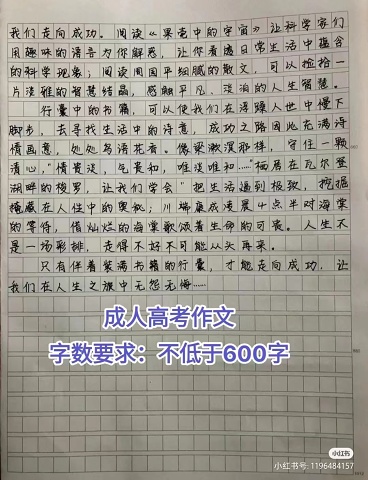 我们走向成功。阅读《果壳中的宇宙》让科学家们
用趣味的语言为你解惑，让你看透日常生活中蕴含
的科学现象；阅读周国平细腻的散文，可以捡拾一
片淡雅的智慧结晶，感触平凡、淡泊的人生智慧。
行囊中的书籍，可以使我们在浮躁人世中慢下
脚步，去寻找生活中的诗意，成功之路因此充满诗
情画意，处处鸟语花香。像梁漱溟那样，守住一颗
清心，"情贵淡，气贵和，唯淡唯和……"栖居在瓦尔登
湖畔的梭罗，让我们学会"把生活逼到极致，挖掘
掩藏在人性中的奥秘；川端康成凌晨4点半对海棠
的等待，借灿烂的海棠歌颂着生命的可贵。人生不
是一场彩排，走得不好不可能从头再来。
只有伴着装满书籍的行囊，才能走向成功，让
我们在人生之旅中无怨无悔……
成人高考作文
字数要求：不低于600字
小红书
小红书号：1196484157